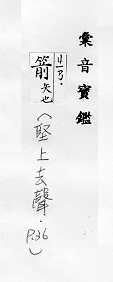 彙音寶鑑
箭 矢也
(堅上去聲.
P.36)